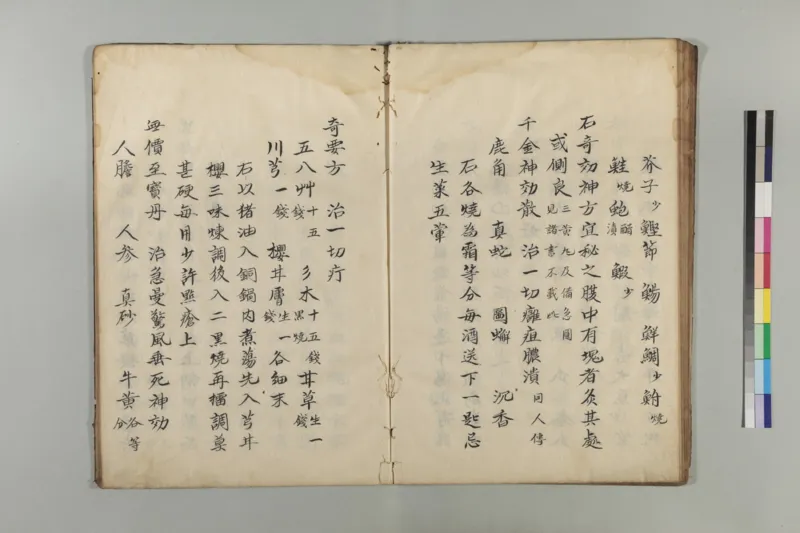 芥子少 鰹節 鰑 鮮鯛少 鮒焼
鮭焼 鮑 鰕少
右奇効神方宜秘之腹中有塊者灸其處
或側良三黄丸及備急圓見諸書不載此
千金神効散 治一切癰疽膿潰因人傳
鹿角 真蛇 圓 沉香
右各燒為霜等分每酒送下一匙忌
生菜五葷
奇要方 治一切疔
五八艸十五錢 木十五錢黒燒 甘草生一錢
川芎一錢 櫻甘膚生一錢 各細末
右以猪油入銅鍋内煮蕩先入芎甘
櫻三味煉調後入二黒燒再擂調莫
甚硬每用少許點瘡上
無價至寳丹 治急曼驚風垂死神効
人膽 人参 真砂 牛黄各等分